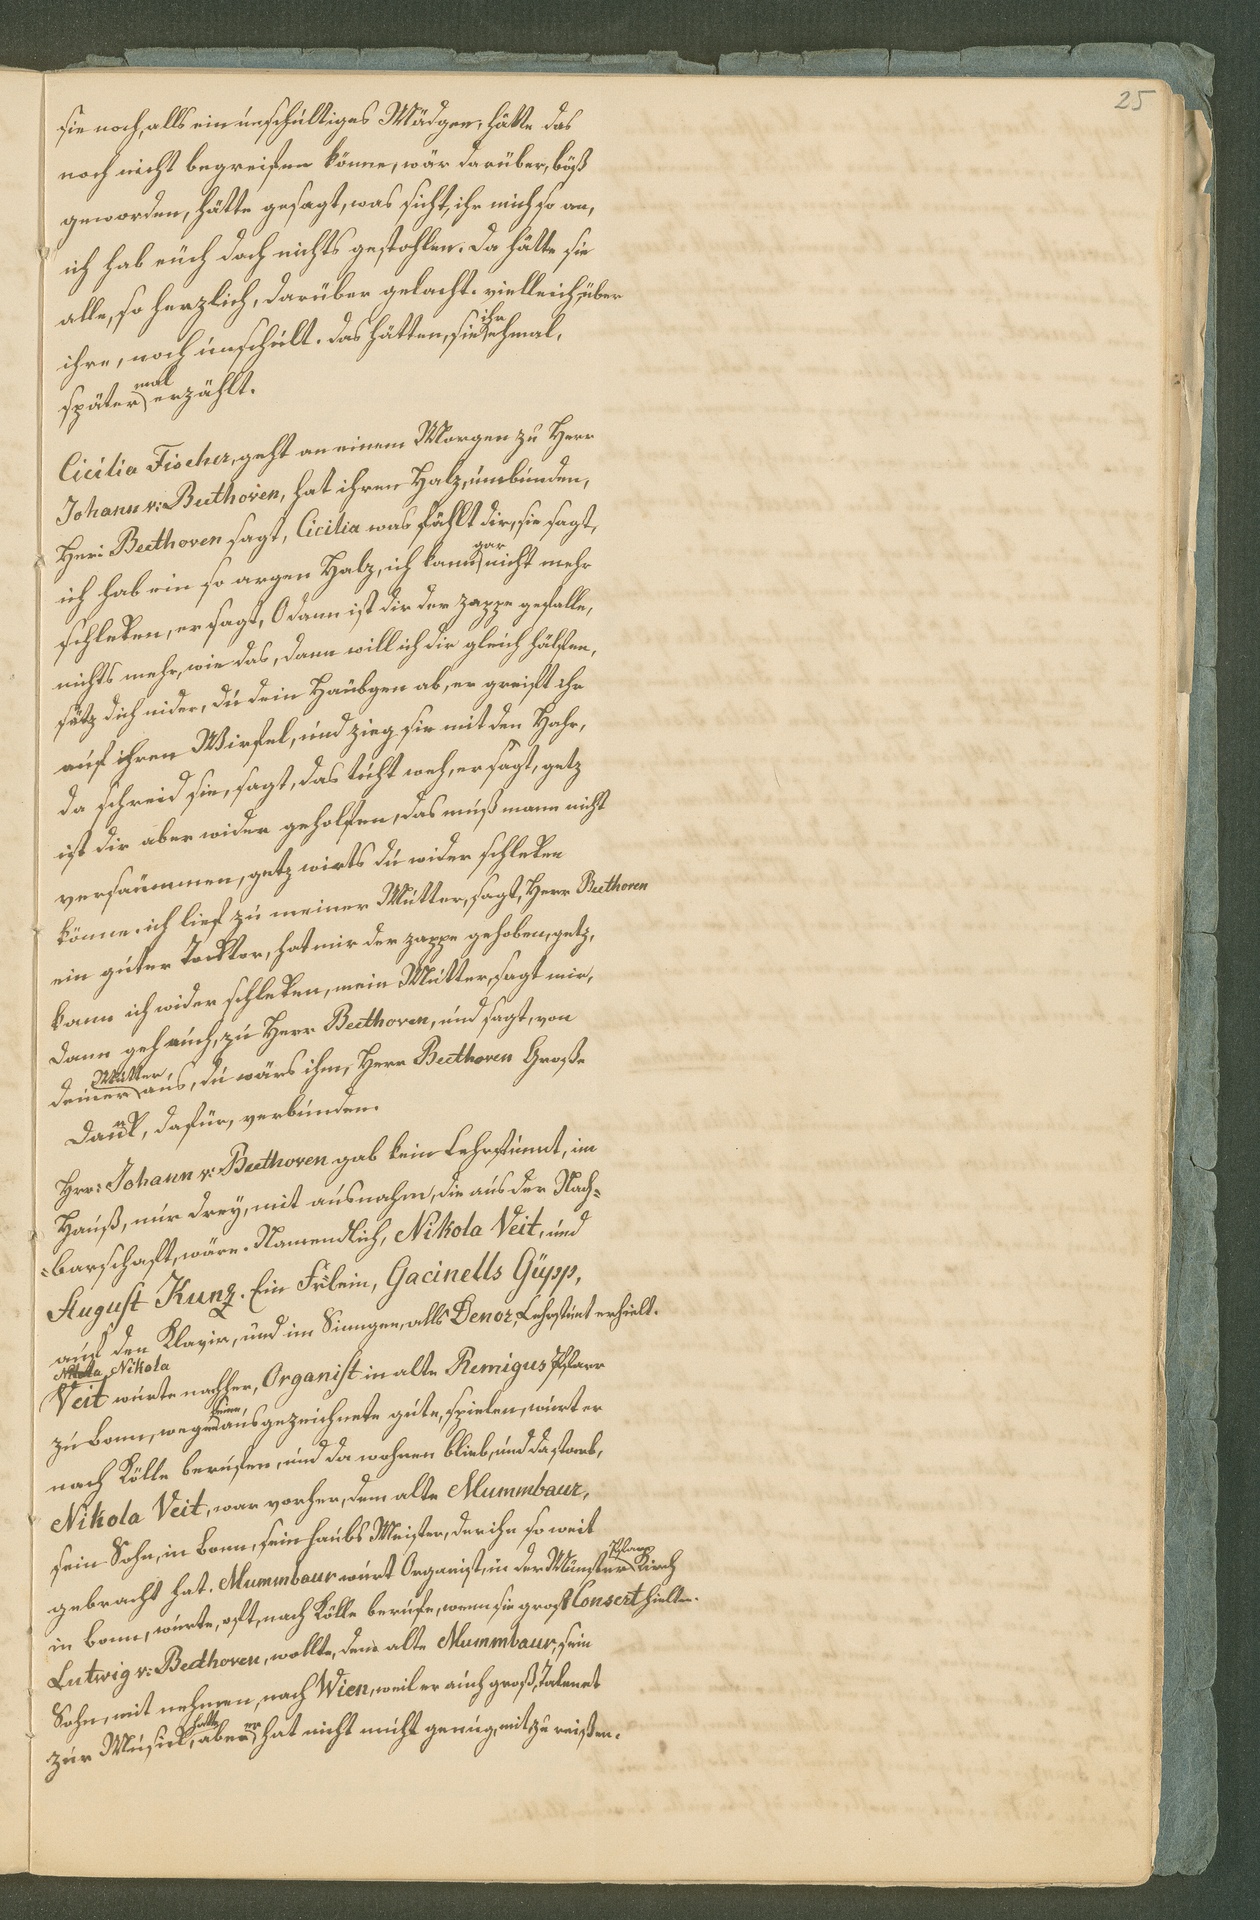 25
sie noch, alls ein unschultiges Mädgen, hätte das
noch nicht begreifen könne, wär darüber, böß
geworden, hätte gesagt, was sicht, ihr mich so an,
ich hab euch doch nichts gestohlen. Da hätte sie
alle, so herzlich, darüber gelacht. vielleich, über
ihre, noch unschult. das hätten, sie ihr ehmal,
später mal erzählt.
Cicilia Fischer, geht an einem Morgen zu Herr
Johann v: Beethoven, hat ihren Halz, umbunden,
Herr Beethoven sagt, Cicilia was fählt dir, sie sagt,
ich hab ein so argen Halz, ich kann gar nicht mehr
schleken, er sagt, O dann ist dir der zappe gefalle,
nichts mehr, wie das, dann will ich dir gleich hälfen,
sätz dich nider, du dein Häubgen ab, er greift ihr
auf ihren Wirfel, und zieg sie mit den Hahr,
da schreid sie, sagt, das tuht weh, er sagt, getz
ist dir aber wider geholfen, das muß mann nicht
versäummen, getz wirts du wider schleken
könne. ich lief zu meiner Mutter, sagt, Herr Beethoven
ein guter Docktor, hat mir der zappe gehoben, getz,
kann ich wider schleken, mein Mutter, sagt mir,
Dann geh auch, zu Herr Beethoven, und sagt, von
deiner Mutter, aus, du wärs ihm, Herr Beethoven Große
Dank, dafür, verbunden.
Herr: Johann v: Beethoven gab kein Lehrstunt, im
Hauß, nur drey, mit ausnahm, die aus der Nach=
=barschaft, wäre. Namendlich, Nikola Veit, und
August Kunz. Ein Frlein, Gacinells Güpp,
auf den Klavir, und im Singen, alls Denor, Lehrstunt erhielt.
Nikola
Veit wurte nachher, Organist in alte Remigus Pfarr
zu Bonn, wegen seine, ausgezeichnete gute, spielen, wurt er
nach Kölle berufen, und da wohnen blieb, und da starb,
Nikola Veit, war vorher, dem alte Mummbaur,
sein Sohn, in Bonn, sein haubs Meister, der ihn so weit
gebracht hat. Mummbaur wurt Organist, in der Münster Pfarr Kirch
in Bonn, wurte, oft, nach Kölle berufe, wenn sie groß Consert hielte.
Lutwig v: Beethoven, wollte, dem alte Mummbaur, sein
Sohn, mit nehmen, nach Wien, weil er auch groß, Talenet
zur Musick, hatte, aber er hat nicht muht genug, mit zu reißen.